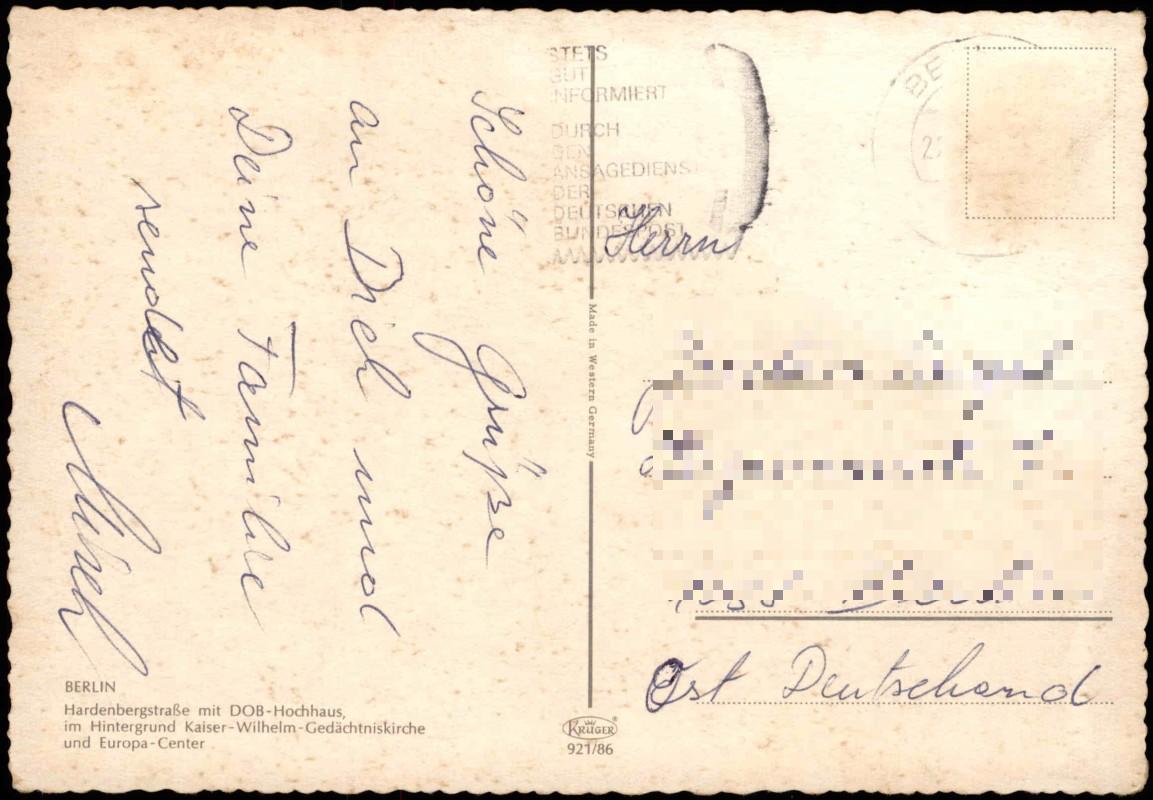 Schöne Grüße
an Dich und
Deine Familie
sendet
STETS
GUT
INFORMIERT
DURCH
DEN
ANSAGEDIENST
DER
DEUTSCHEN
BUNDESPOST
BE
Herrn
Made in Western Germany
Ost Deutschand
BERLIN
Hardenbergstraße mit DOB-Hochhaus,
im Hintergrund Kaiser-Wilhelm-Gedächtniskirche
und Europa-Center
KRÜGER
921/86